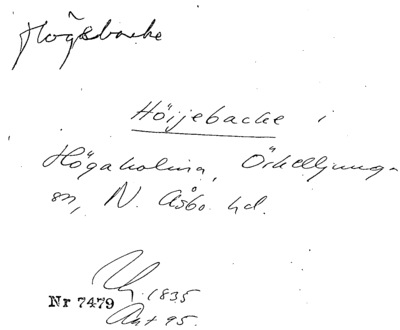 Högsbacke
Höijebacke i
Högaholma, Örkelljunga
sn, N. Åsbo hd.
1835
Nr 7479
Ant 95.